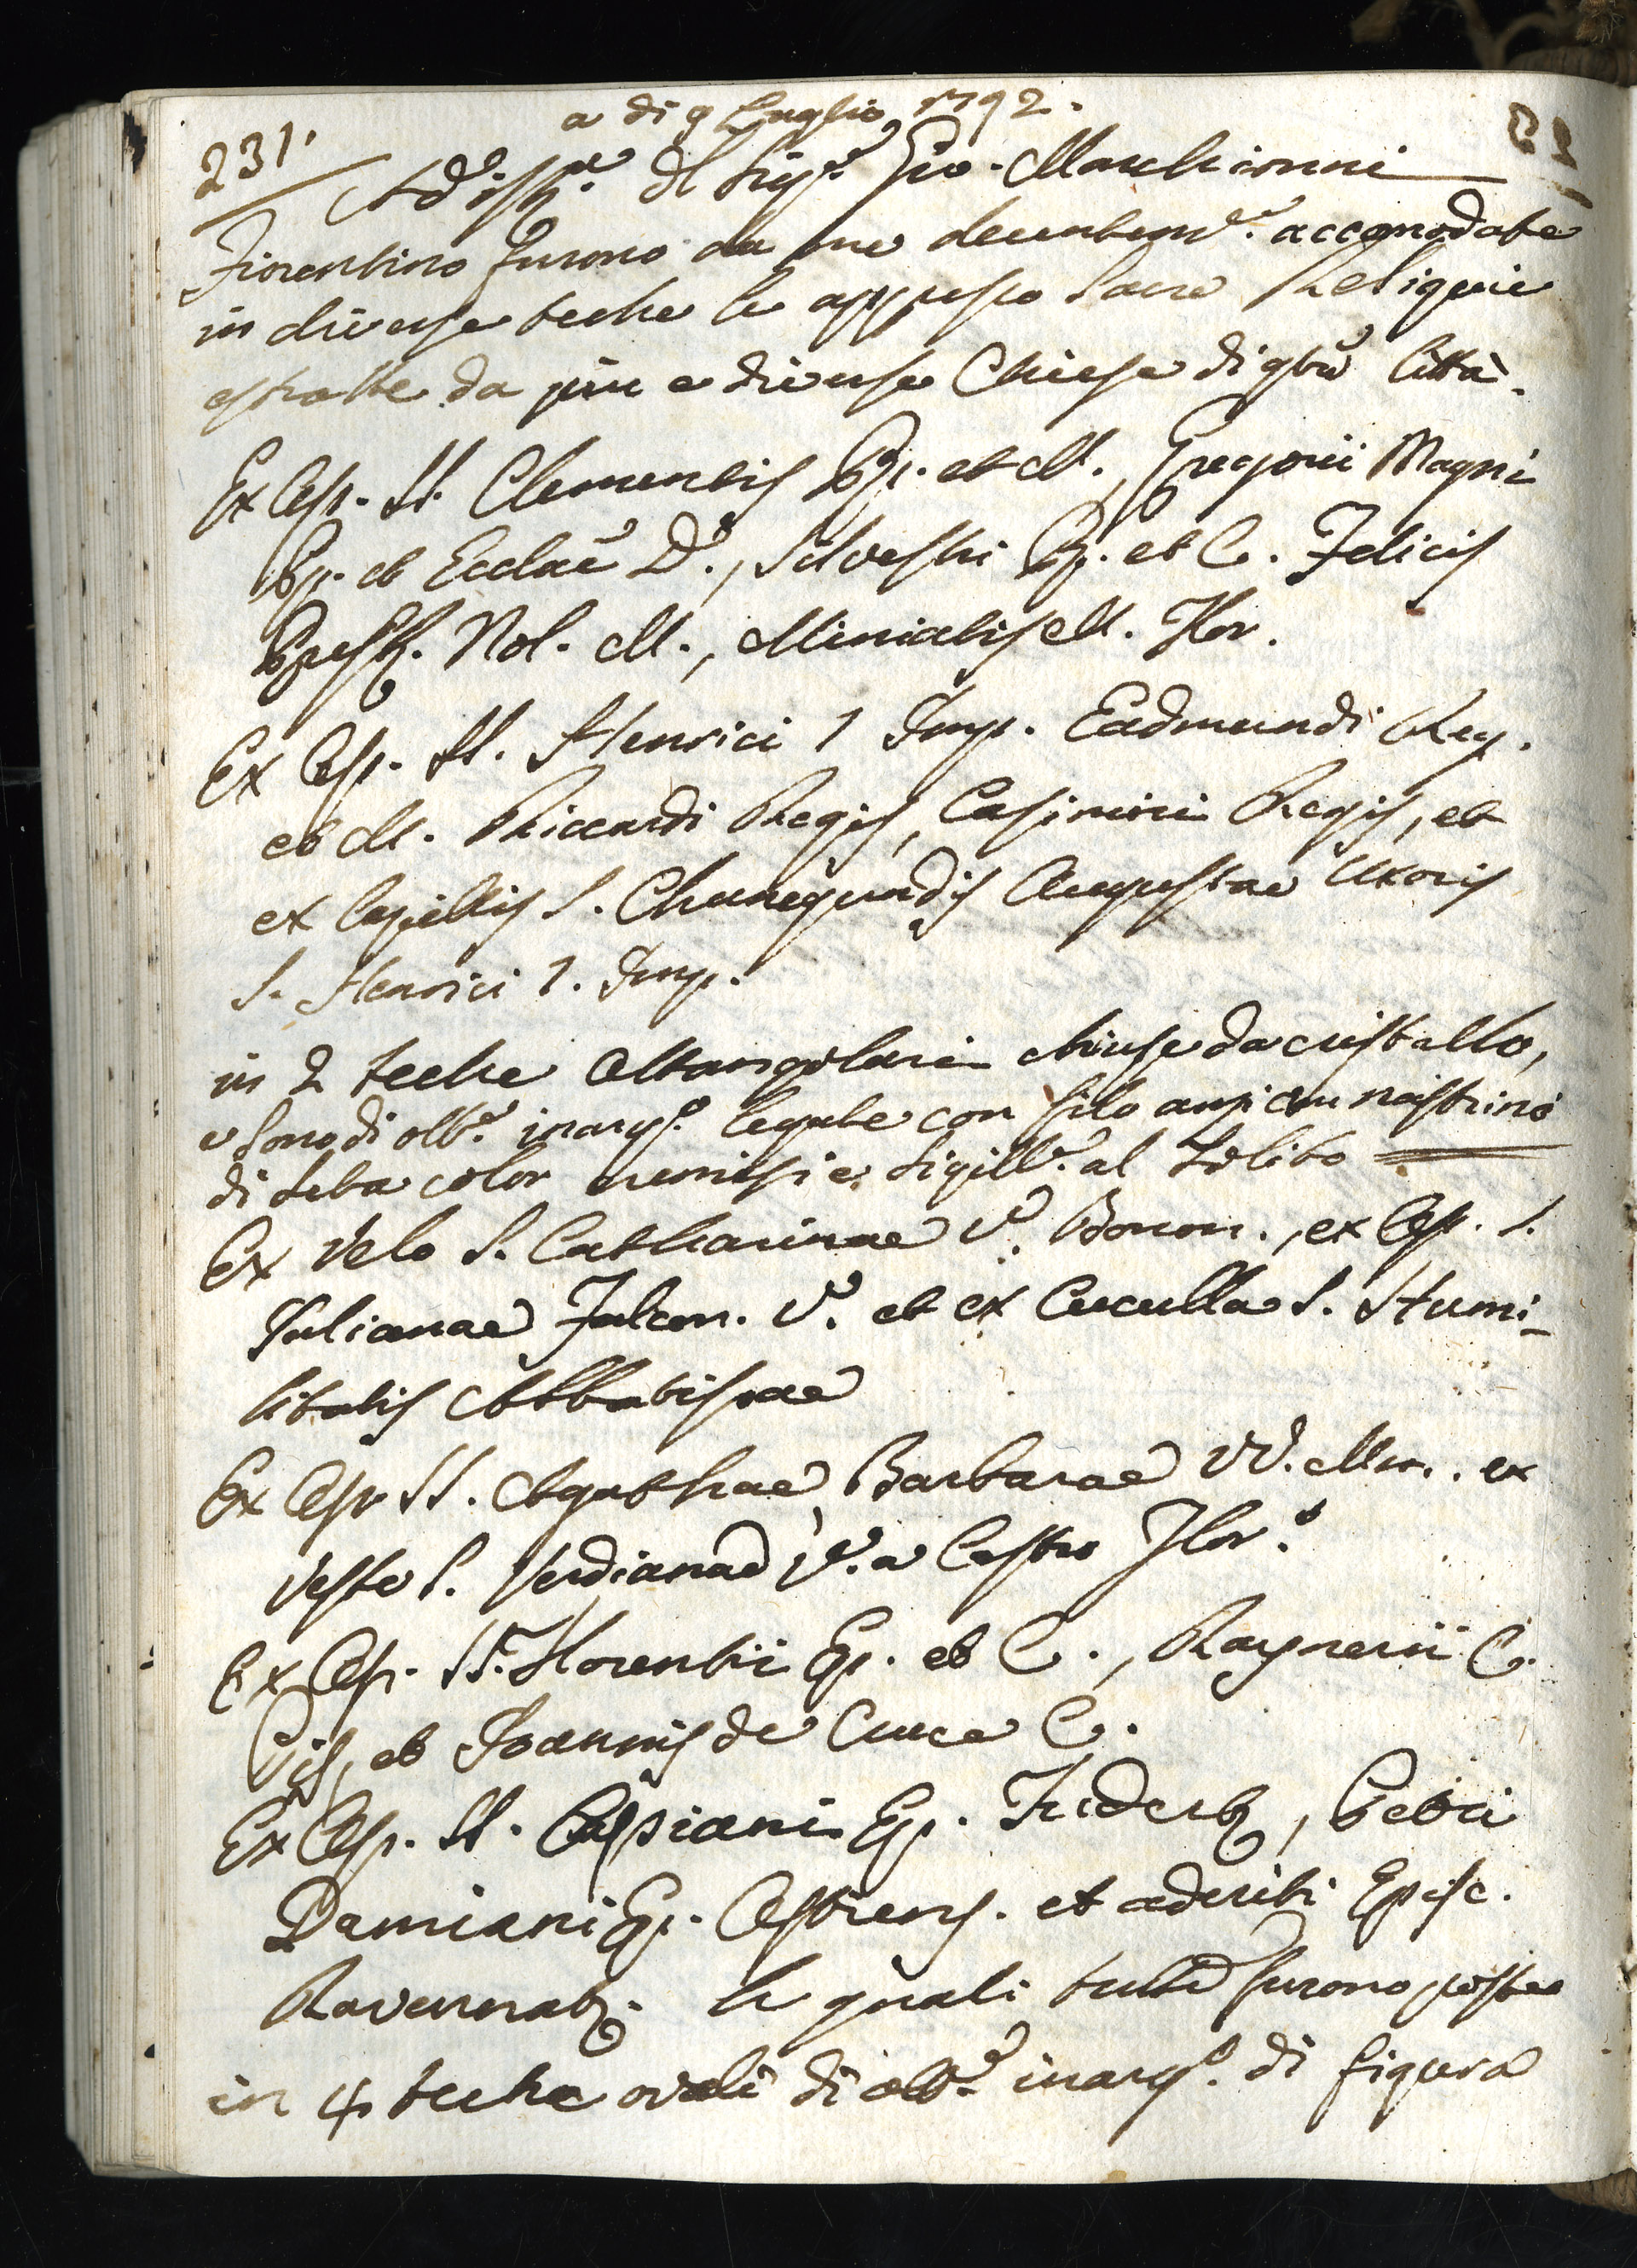 a di 9 Luglio 1792.
231.
Ad ist.ª del Sig.ʳ Gio. Marchionni
Fiorentino furono da me decentem.ᵉ accomodate
in diverse teche le appresso Sacre Reliquie
estratte da più e diverse Chiese di qtā Città.
Ex Oss. SS. Clementis Pp. et M., Gregorii Magni
Pp. et Ecclae D., Silvestri Pp. et C. Felicis
Presb. Nol. M., Miniatis M. Flor.
Ex Oss. SS. Henrici 1 Imp. Eadmundi Reg.
et M. Riccardi Regis, Casimiri Regis, et
ex Capillis S. Chunegundis Augustae Uxoris
S. Henrici 1. Imp.
in 2 teche ottangolari chiuse da cristallo,
e sono di ott.ᵉ inarg.ᵒ legate con filo anzi con nastrino
di seta color cremisi e sigill.ᵉ al solito
Ex Velo S. Catharinae V. Bonon., ex Oss. S.
Julianae Falcon. V. et ex Cuculla S. Humi-
litatis Abbatissae
Ex Oss. SS. Agathae, Barbarae VV. Mm. ex
Veste S. Verdianae V. a Castro Flor.º
Ex Oss. SS. Florentii Ep. et C., Raynerii C.
Pis, et Joannis de Cruce C.
Ex Oss. SS. Cassiani Ep. Tudert, Petri
Damiani Ep. Ostiens. et aderiti Episc.
Ravennat. le quali tutte furono poste
in 4 teche ovali di ott.ᵉ inarg.ᵒ di figura